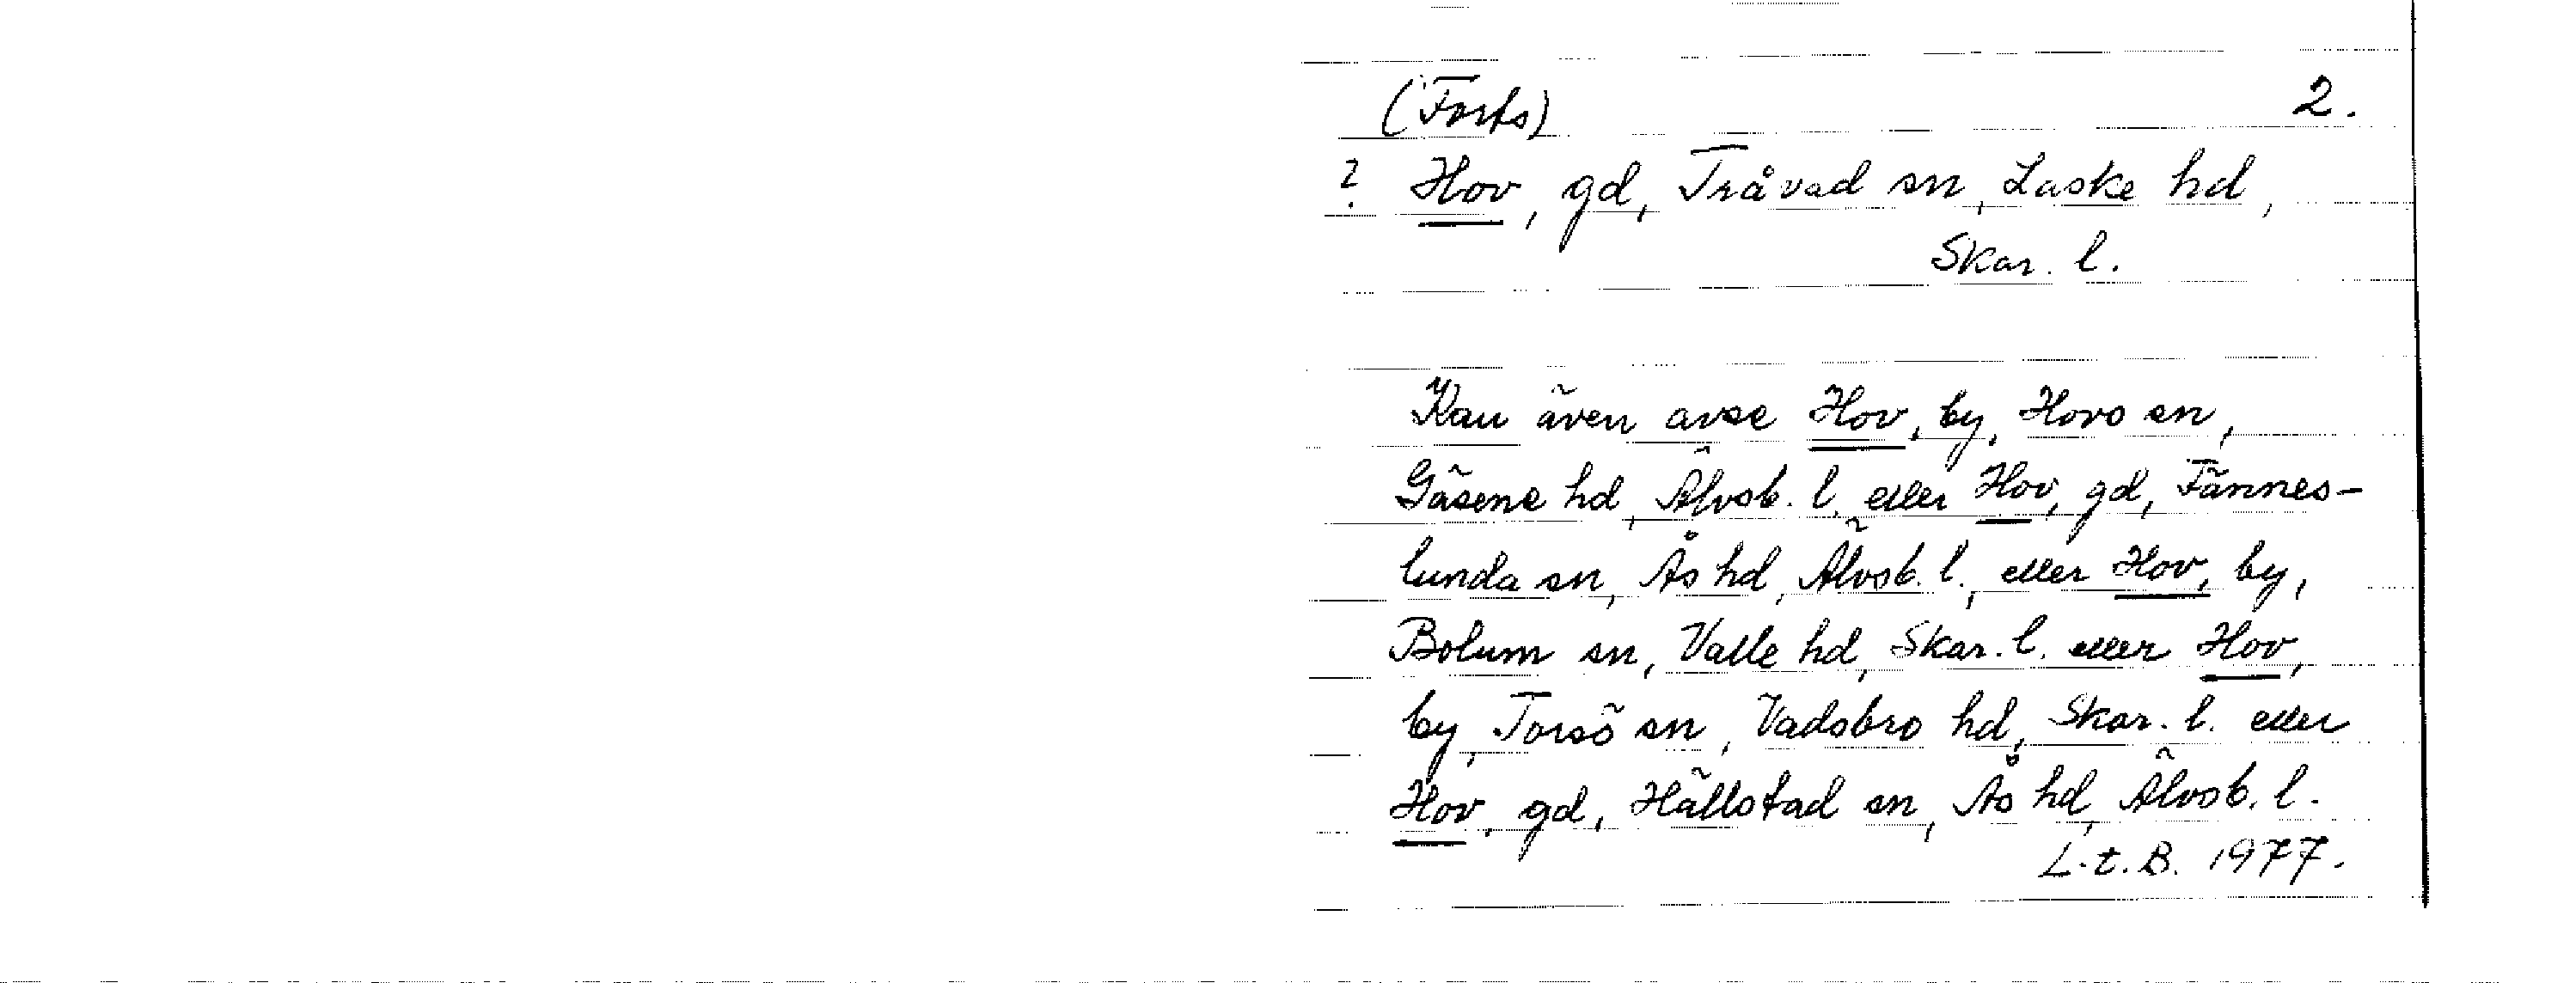 (Forts) 2.
? Hov, gd, Tråvad sn, Laske hd,
Skar. l.
Kan även avse Hov, by, Hovs sn,
Gäsene hd, Älvsb. l. eller Hov, gd, Fännes-
lunda sn, Ås hd, Älvsb. l., eller Hov, by,
Bolum sn, Valle hd, Skar. l. eller Hov,
by, Torsö sn, Vadsbro hd, Skar. l. eller
Hov, gd, Hällstad sn, Ås hd, Älvsb. l.
L.t.B. 1977.